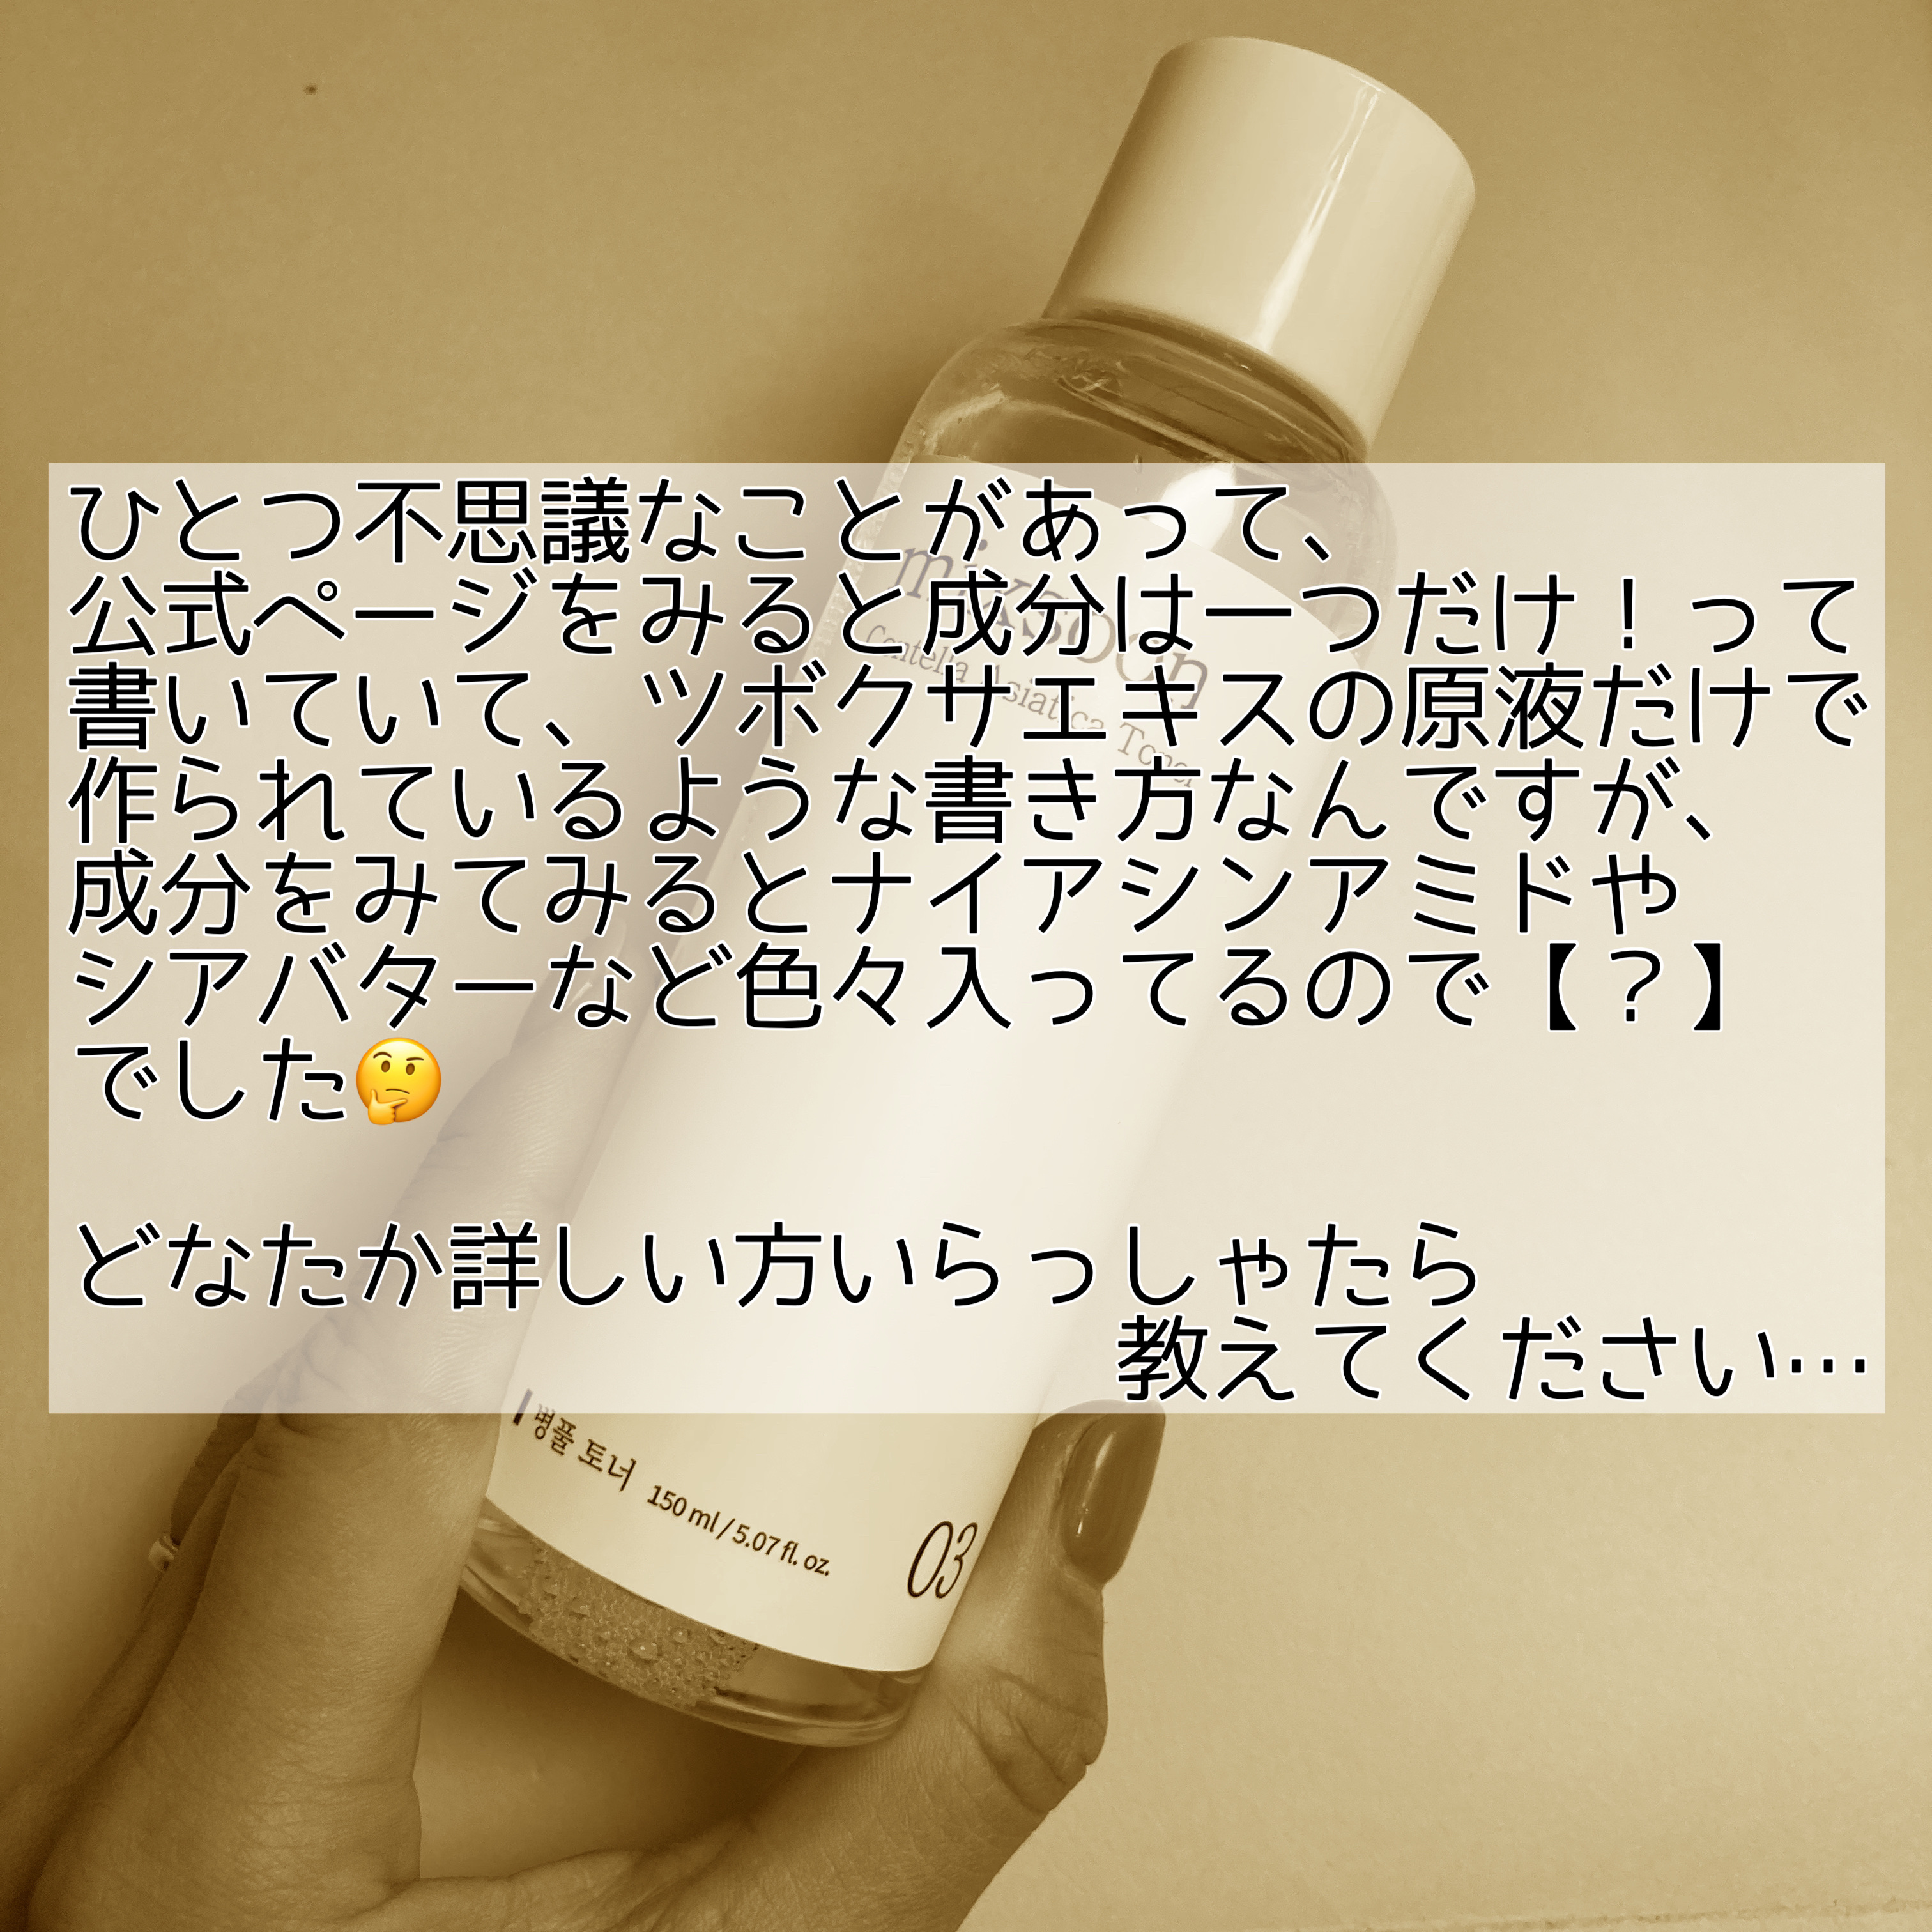 ひとつ不思議なことがあって、
公式ページをみると成分は一つだけ！って
書いていて、ツボクサエキスの原液だけで
作られているような書き方なんですが、
成分をみてみるとナイアシンアミドや
シアバターなど色々入ってるので【？】
でした🤔
どなたか詳しい方いらっしゃたら
教えてください…
mixsoon
Centella Asiatica Toner
병풀 토너 150 ml / 5.07 fl. oz.
03